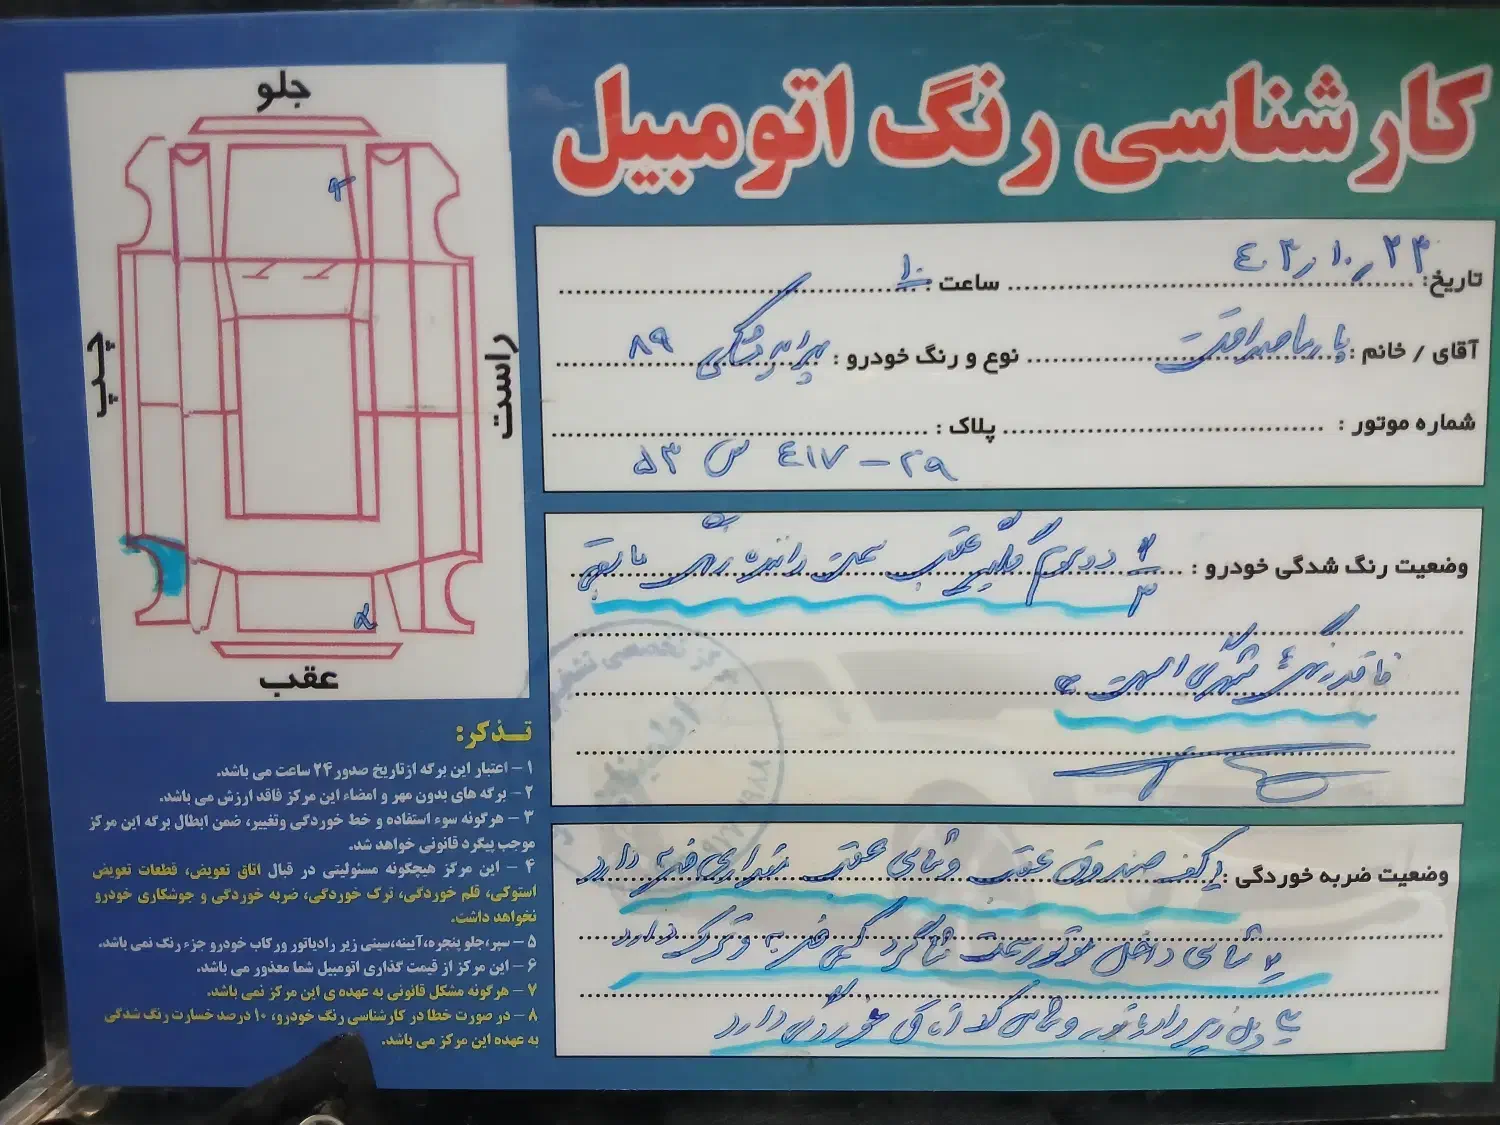 کارشناسی رنگ اتومبیل
جلو
چپ
راست
عقب
تاریخ: ۴۰۲٫۱۰٫۲۳ ساعت: ۱۰
آقای / خانم: پارسا صداقت نوع و رنگ خودرو: پراید مشکی ۸۹
شماره موتور: پلاک:
۵۳ س ۴۱۷ - ۲۹
وضعیت رنگ شدگی خودرو: ۲/۳ دو سوم گلگیر عقب سمت راننده رنگ مابقی
فاقد رنگ شدگی است
وضعیت ضربه خوردگی: ۱ کف صندوق عقب و شاسی عقب مقداری ضربه دارد
۲ شاسی داخل موتور سمت شاگرد کمی ضربه و ترک دارد
۳ دل زیر رادیاتور و شاسی کلا آبکی خوردگی دارد
تـذکر:
۱- اعتبار این برگه ازتاریخ صدور ۲۴ ساعت می باشد.
۲- برگه های بدون مهر و امضاء این مرکز فاقد ارزش می باشد.
۳- هرگونه سوء استفاده و خط خوردگی وتغییر، ضمن ابطال برگه این مرکز
موجب پیگرد قانونی خواهد شد.
۴- این مرکز هیچگونه مسئولیتی در قبال اتاق تعویض، قطعات تعویض
استوکی، قلم خوردگی، ترک خوردگی، ضربه خوردگی و جوشکاری خودرو
نخواهد داشت.
۵- سپر،جلو پنجره،آیینه،سینی زیر رادیاتور ورکاب خودرو جزء رنگ نمی باشد.
۶- این مرکز از قیمت گذاری اتومبیل شما معذور می باشد.
۷- هرگونه مشکل قانونی به عهده ی این مرکز نمی باشد.
۸- در صورت خطا در کارشناسی رنگ خودرو، ۱۰ درصد خسارت رنگ شدگی
به عهده این مرکز می باشد.